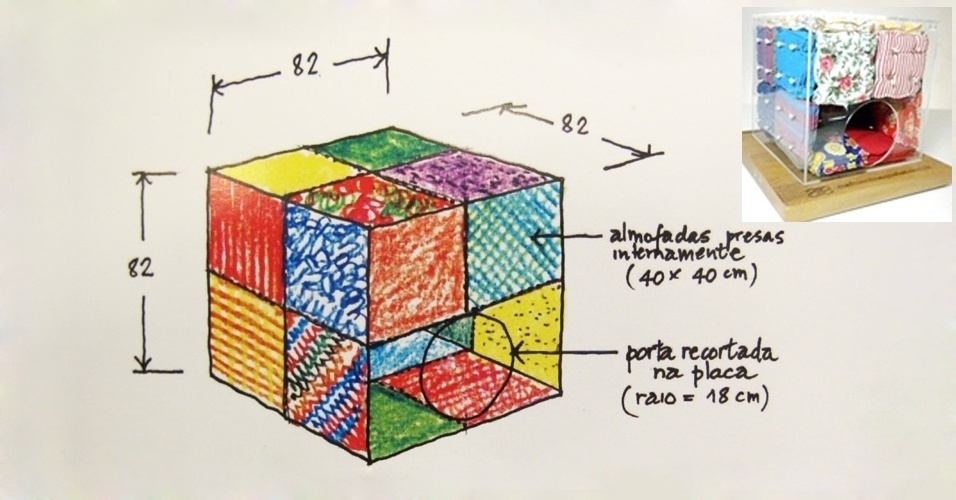 82
82
82
almofadas presas
internamente
(40 × 40 cm)
porta recortada
na placa
(raio = 18 cm)